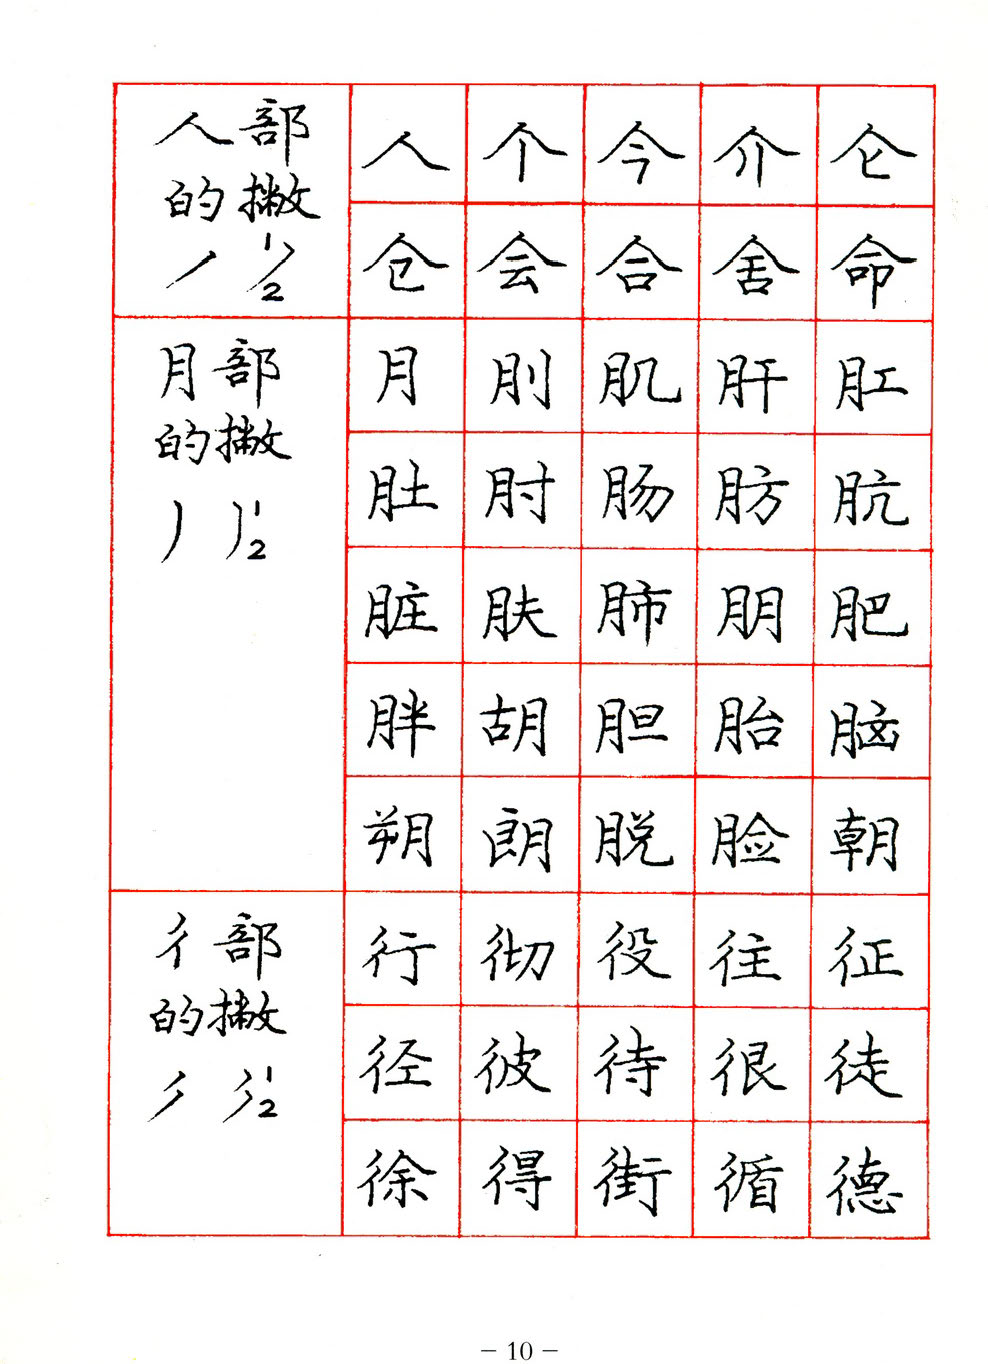 人部
的撇
丿 1 2
人个今介仑
仓会合舍命
月部
的撇
丿 1 2
月刖肌肝肛
肚肘肠肪肮
脏肤肺朋肥
胖胡胆胎脑
朔朗脱脸朝
彳部
的撇
丿 1 2
行彻役往征
径彼待很徒
徐得街循德
- 10 -